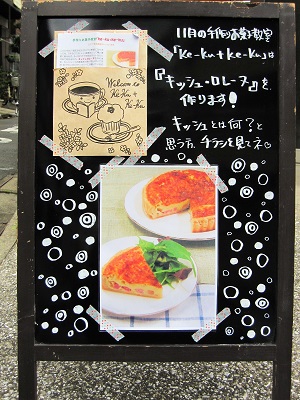 11月の手作りお菓子教室
「Ke-Ku+Ke-Ku」は
『キッシュ・ロレーヌ』を
作ります!
キッシュとは何?と
思う方、チラシを見てネ
Welcome to
Ke-Ku +
Ke-Ku